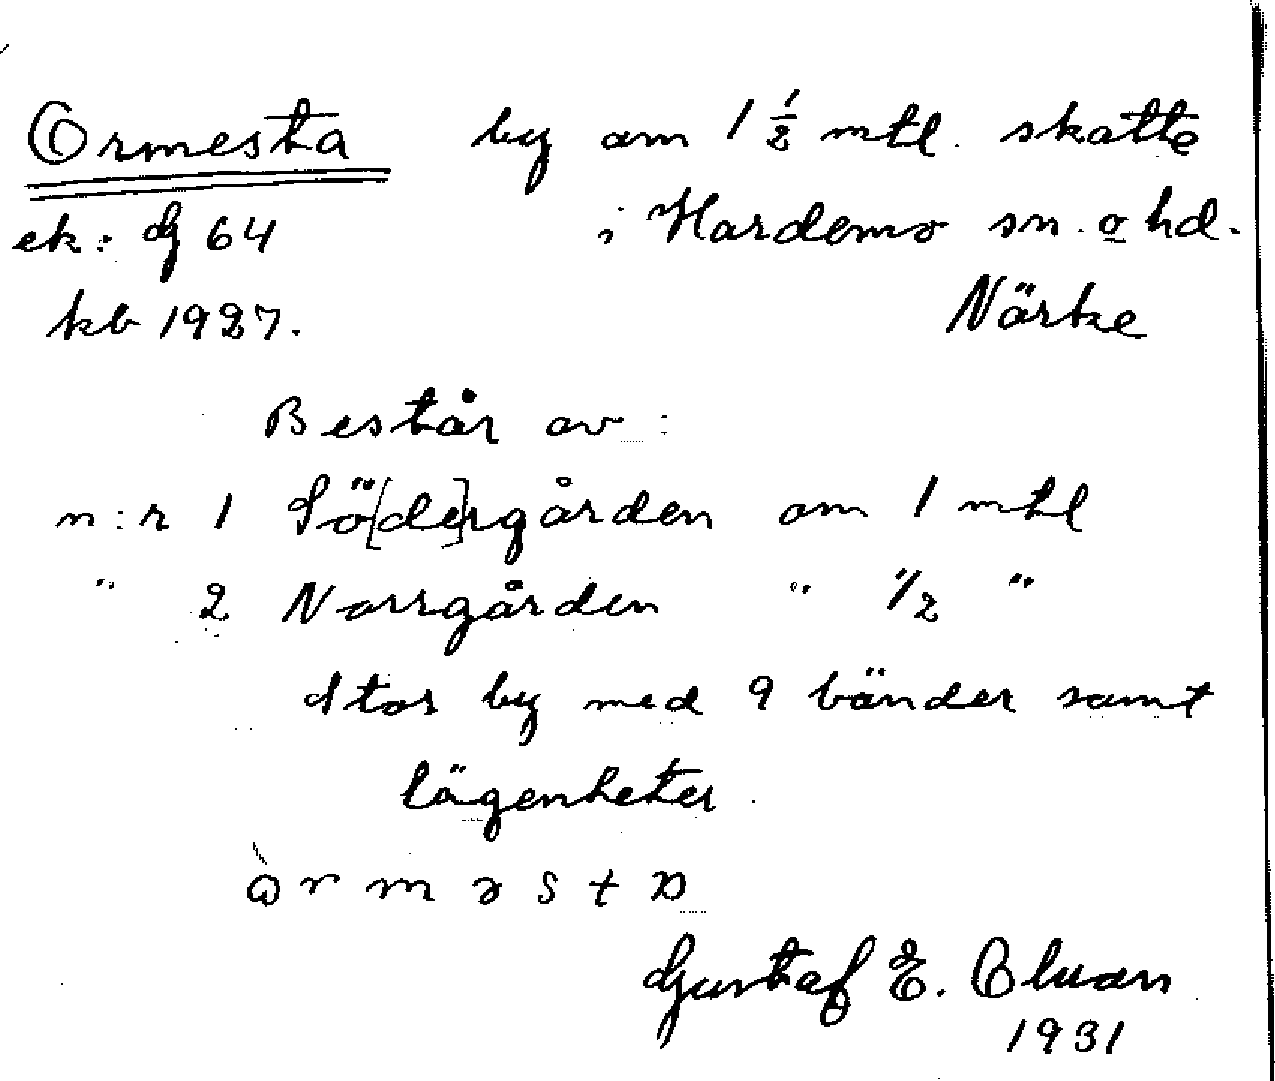 Ormesta by om 1 1/2 mtl. skatte
ek: G 64 i Hardemo sn. o hd.
kb 1927. Närke
Består av:
n:r 1 Sö[de]rgården om 1 mtl
" 2 Norrgården " 1/2 "
Stor by med 9 bönder samt
lägenheter.
Gustaf E.
1931